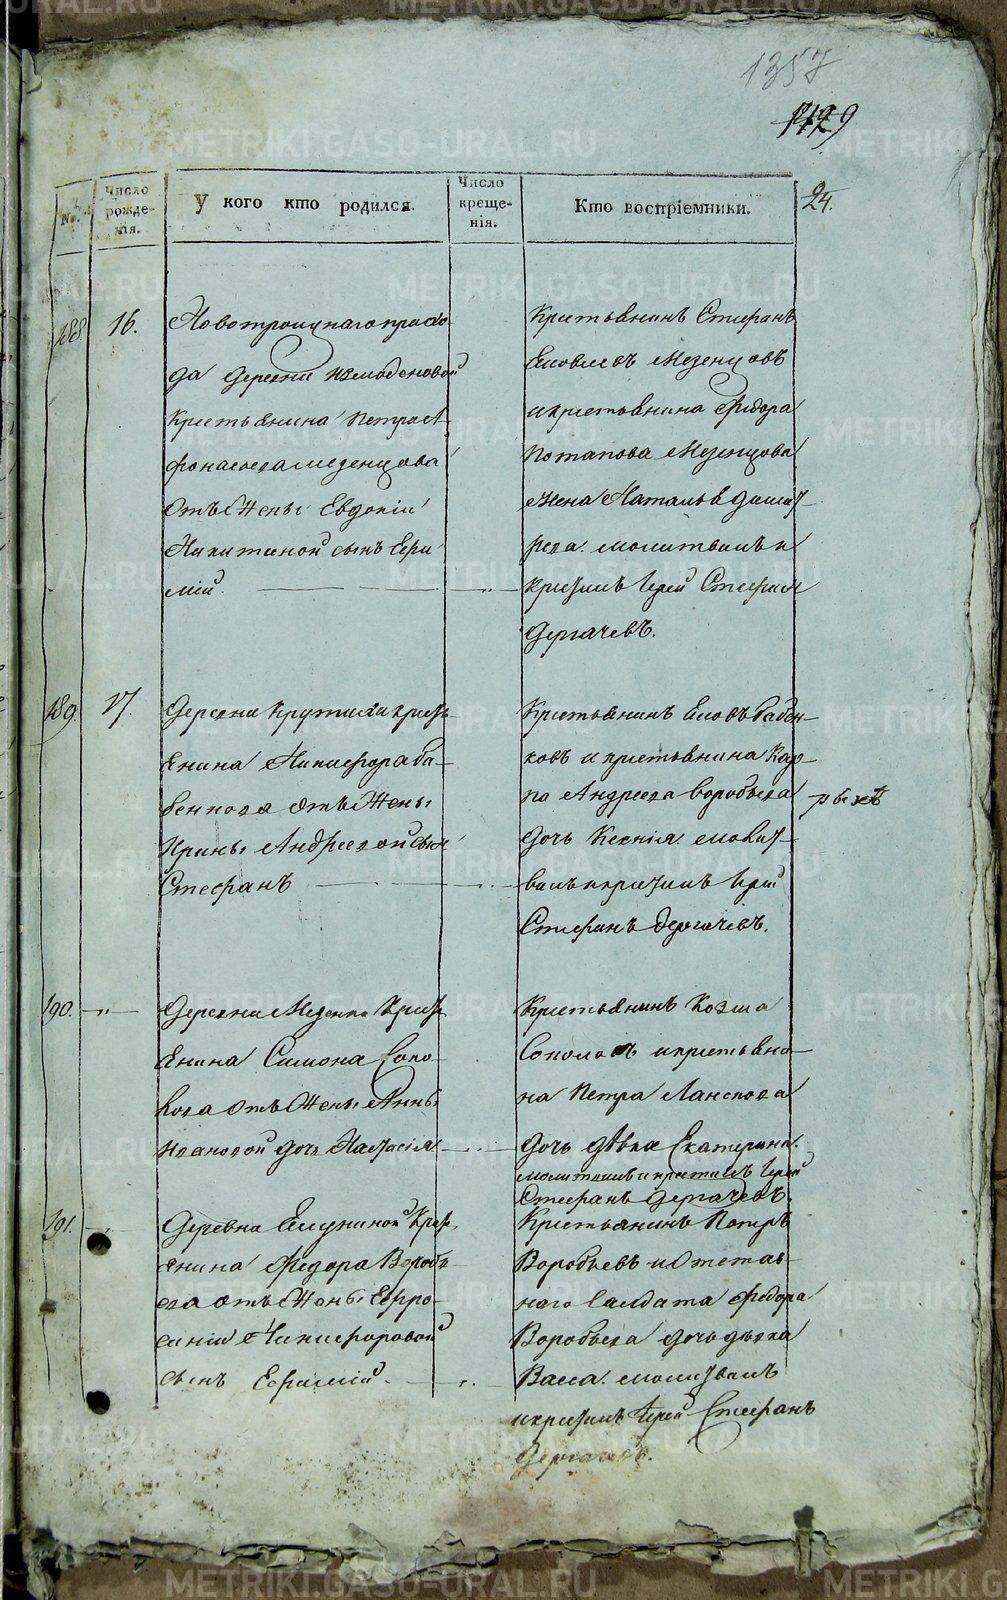 1357
9
24.
№.
Число рожде-нія.
У кого кто родился.
Число креще-нія.
Кто воспріемники.
188.
16.
Новотроицкаго прихо-
да деревни
крестьянина Петра А-
фонасьева Мезенцова
отъ Жены Евдокіи
Никитиной сынъ Ефи-
мій.
Крестьянинъ Стефанъ
Яковлевъ Мезенцовъ
и крестьянина Федора
Потапова Мезенцова
Жена Наталья
молитвилъ и
крестилъ Іерей Стефан
Дергачевъ.
189.
17.
Деревни Крутихи крест-
янина Никифора Ба-
беннова отъ Жены
Ирины Андреевой сын
Стефанъ
Крестьянинъ Яковъ Бабен-
ковъ и крестьянина Кар-
па Андреева Воробьева
дочь Ксенія. молит-
вилъ и крестилъ Іерей
Стефанъ Дергачевъ.
190.
Деревни Крест-
янина Симона Соко-
лова отъ Жены Анны
Ивановой дочь Настасія
Крестьянинъ Козма
Соколовъ и крестьяни-
на Петра Ланскова
дочь дѣвка Екатерина.
молитвилъ и крестилъ Іерей
Стефанъ Дергачевъ.
191.
Деревни Ялуниной Крест-
янина Федора Воробь-
ева отъ Жены Евро-
синіи Никифоровой
сынъ Ефимій.
Крестьянинъ Петръ
Воробьевъ и Отстав-
наго Салдата Федора
Воробьева дочь дѣвка
Васса. молитвилъ
и крестилъ Іерей Стефанъ
Дергачевъ.
METRIKI.GASO-URAL.RU